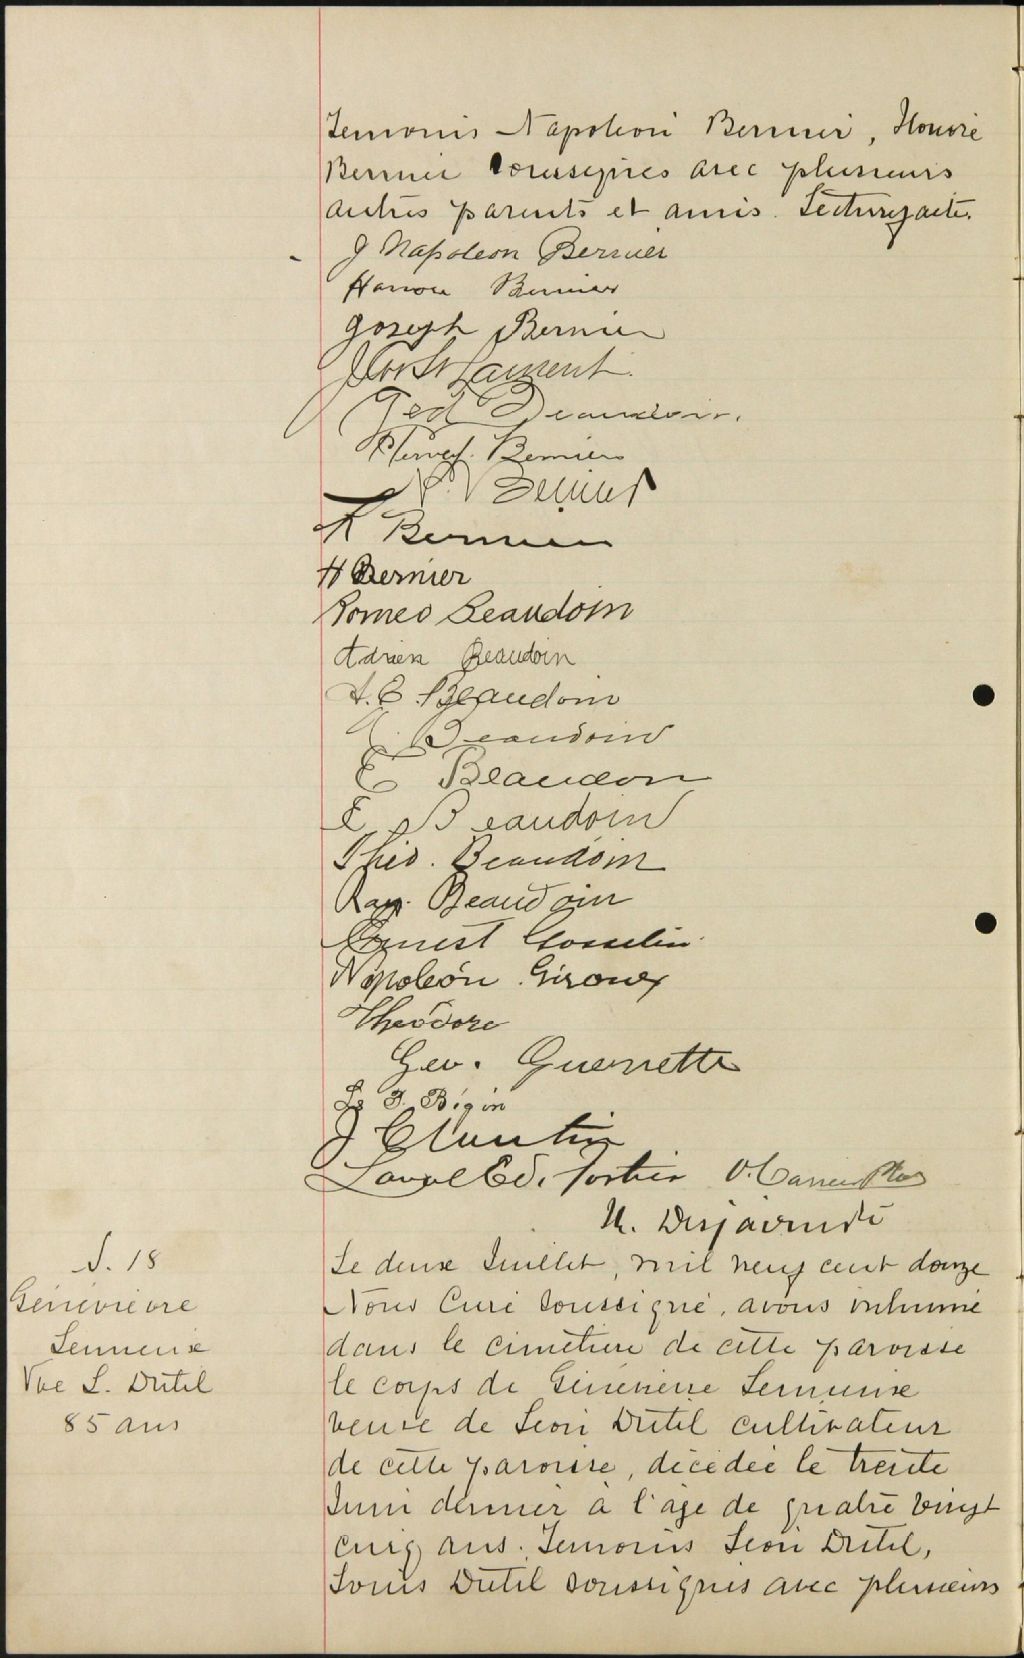 Temoins Napoléon Bernier, Honoré
Bernier soussignés avec plusieurs
autres parents et amis. Lecture faite.
J Napoleon Bernier
Honoré Bernier
Joseph Bernier
St Laurent.
Ted Beaudoin.
Bernier
N. Bernier
Bernier
H Bernier
Romeo Beaudoin
Adrien Beaudoin
A. E. Beaudoin
Beaudoin
E Beaudoin
E Beaudoin
Théo. Beaudoin
Ray. Beaudoin
Ernest Gosselin
Napoléon Giroux
Théodore
Geo. Guenette
Ls J. Bégin
J Cloutier
Laval Ed. Fortier
U. Desjarme
S. 18
Génévieve
Lemieux
Vve L. Dutil
85 ans
Le deux Juillet, mil neuf cent douze
Nous Curé soussigné, avons inhumé
dans le cimetière de cette paroisse
le corps de Génévieve Lemieux
veuve de Léon Dutil cultivateur
de cette paroisse, décédée le trente
Juin dernier à l'age de quatre vingt
cinq ans. Témoins Léon Dutil,
Louis Dutil soussignés avec plusieurs